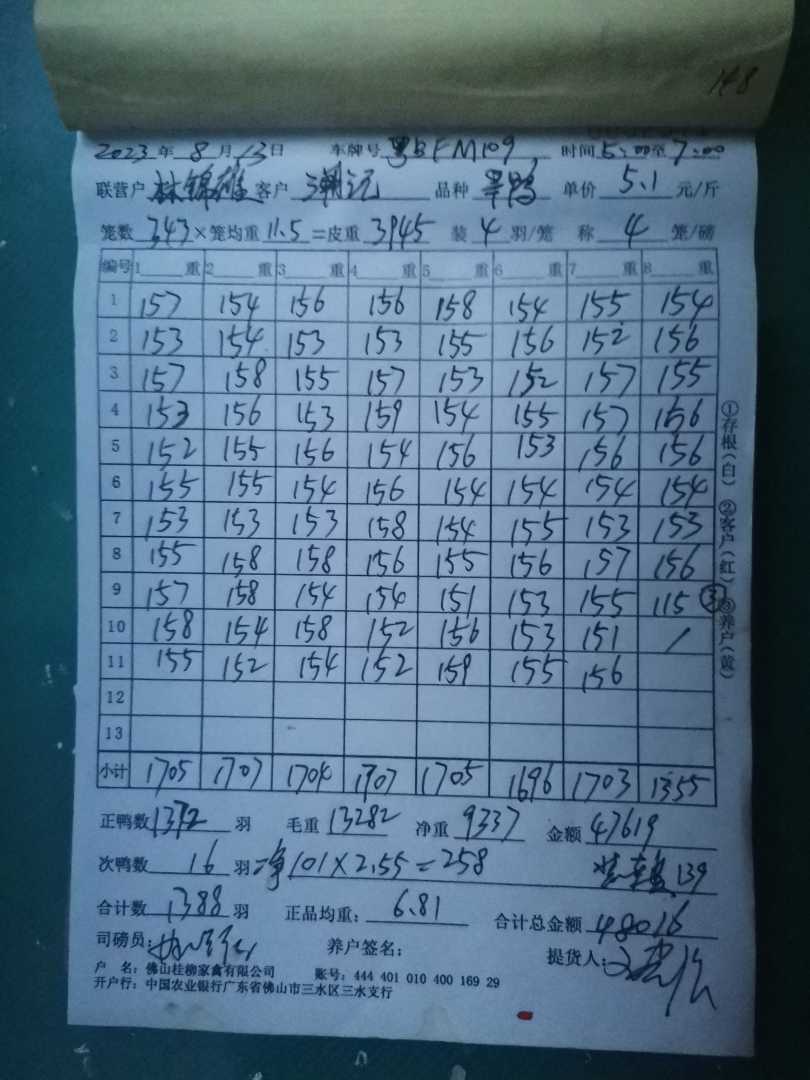 148
2023 年 8 月 13 日 车牌号 粤BFM109 时间 5:00 至 7:00
联营户 林锦雄 客户 品种 单价 5.1 元/斤
笼数 343 × 笼均重 11.5 = 皮重 3945 装 4 羽/笼 称 4 笼/磅
编号 1 重 2 重 3 重 4 重 5 重 6 重 7 重 8 重
1 157 154 156 156 158 154 155 154
2 153 154 153 153 155 156 152 156
3 157 158 155 157 153 152 157 155
4 153 156 153 159 154 155 157 156
5 152 155 156 154 156 153 156 156
6 155 155 154 156 154 154 154 154
7 153 153 153 158 154 155 153 153
8 155 158 158 156 155 156 157 156
9 157 158 154 154 151 153 155 115 ③
10 158 154 158 152 156 153 151 /
11 155 152 154 152 159 155 156
12
13
小计 1705 1707 1704 1707 1705 1696 1703 1355
①存根(白) ②客户(红) ③养户(黄)
正鸭数 1372 羽 毛重 13282 净重 9337 金额 47619
次鸭数 16 羽 净101×2.55=258 139
合计数 1388 羽 正品均重: 6.81 合计总金额 48016
司磅员: 养户签名: 提货人:
户 名: 佛山桂柳家禽有限公司 账号: 444 401 010 400 169 29
开户行: 中国农业银行广东省佛山市三水区三水支行